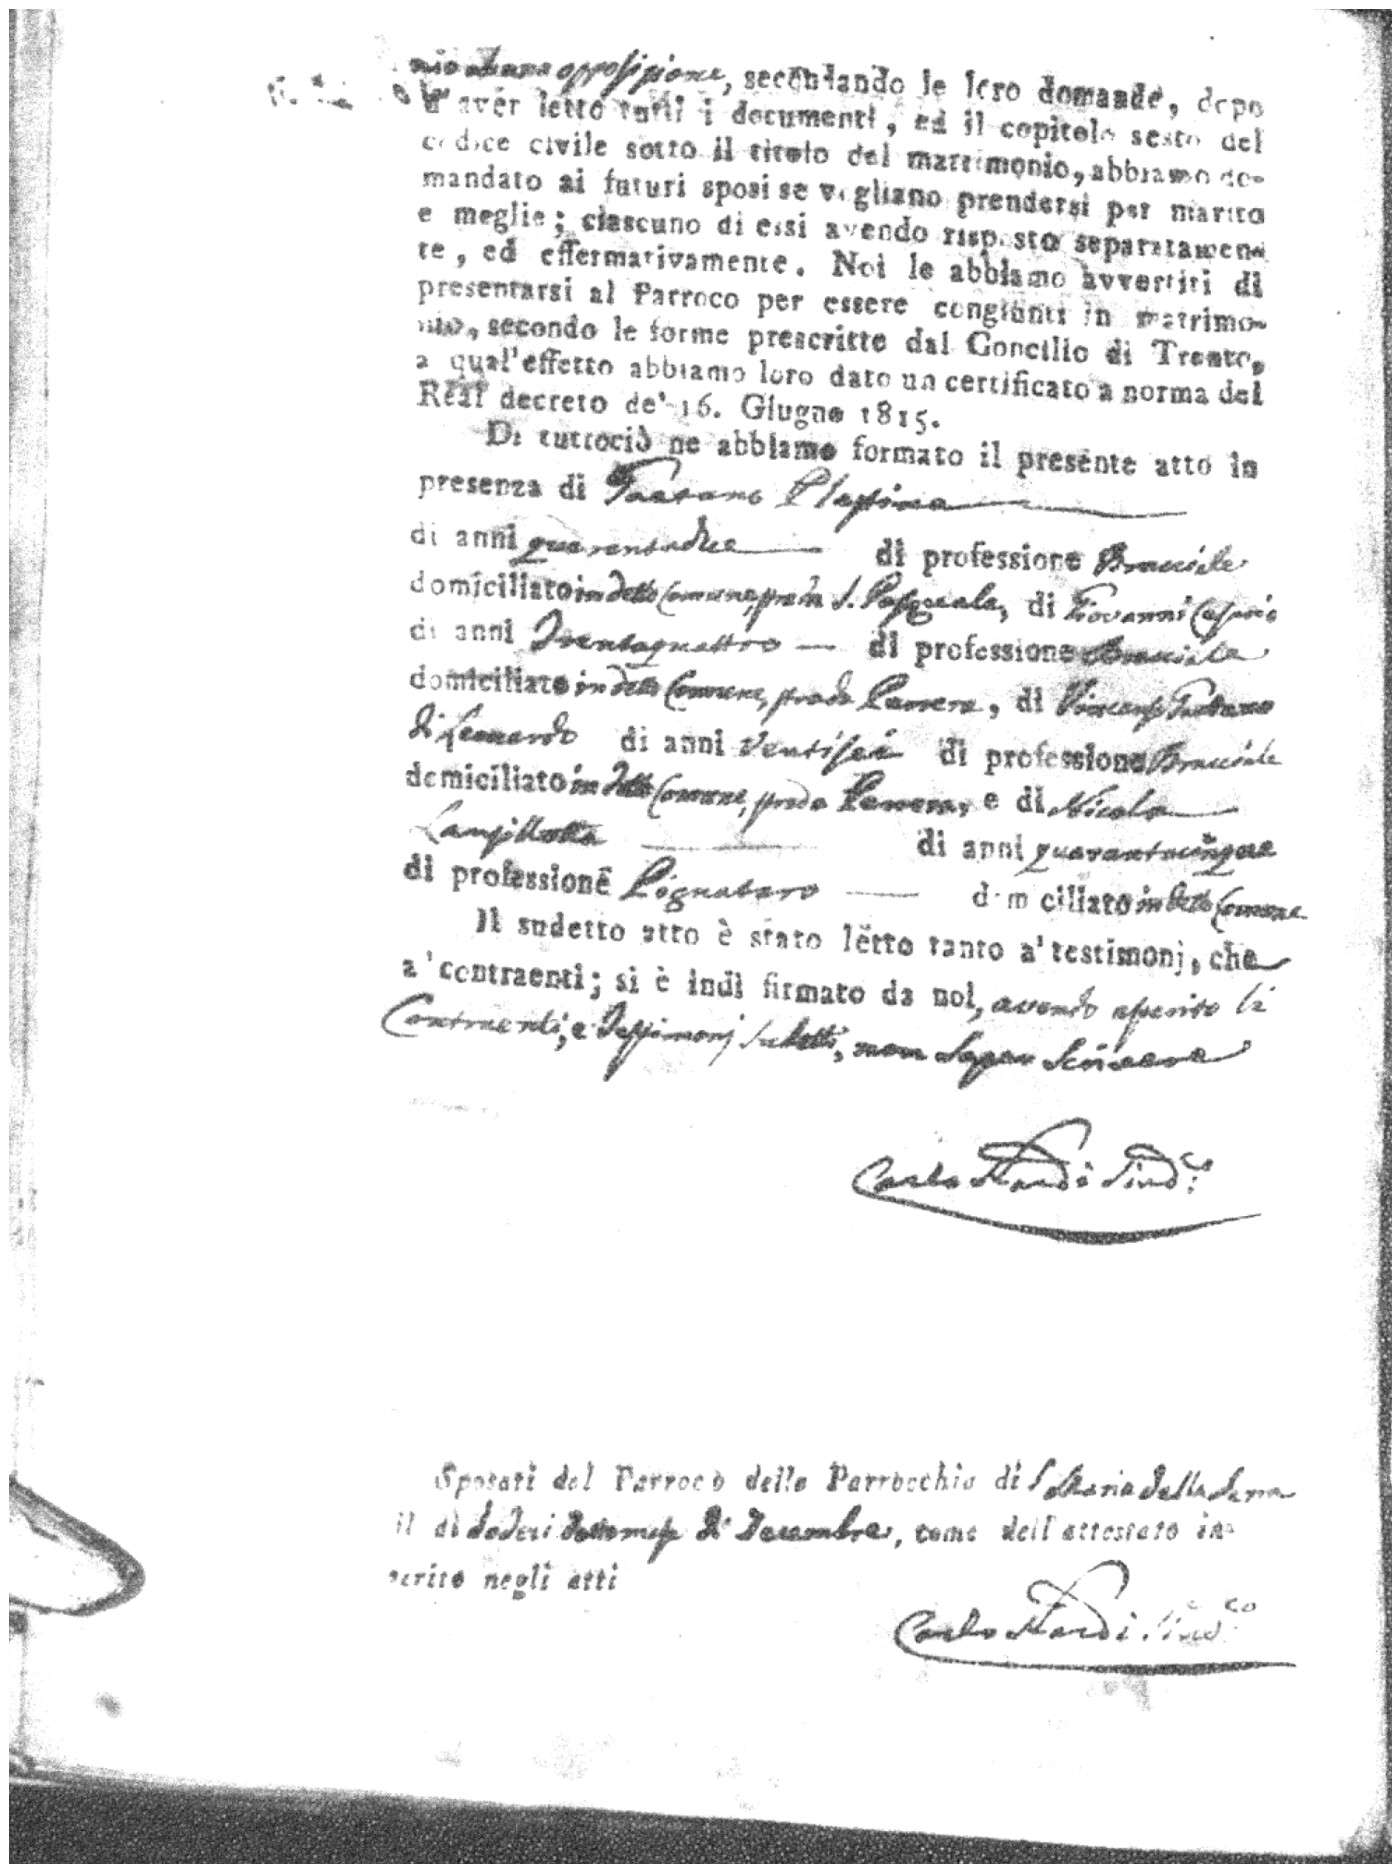 opposizione, secondando le loro domande, dopo
d'aver letto tutti i documenti, ed il copitolo sesto del
codice civile sotto il titolo del matrimonio, abbiamo do-
mandato ai futuri sposi se vogliano prendersi per marito
e moglie; ciascuno di essi avendo risposto separatamen-
te, ed effermativamente. Noi le abbiamo avvertiti di
presentarsi al Parroco per essere congiunti in matrimo-
nio, secondo le forme prescritte dal Concilio di Trento,
a qual'effetto abbiamo loro dato un certificato a norma del
Real decreto de' 16. Giugno 1815.
Di tuttociò ne abbiamo formato il presente atto in
presenza di Gaetano
di anni di professione Bracciale
domiciliato in detto Comune, strada S. Pasquale, di Giovanni
di anni Trentaquattro di professione Bracciale
domiciliato in detto Comune, strada di Vincenzo
di Leonardo di anni Ventisei di professione Bracciale
domiciliato in detto Comune, strada e di Nicola
di anni quarantacinque
di professione Pignataro domiciliato in detto Comune
Il sudetto atto è stato letto tanto a' testimonj, che
a' contraenti; si è indi firmato da noi, avendo asserito li
Contraenti, e Testimonj sudetti, non saper scrivere
Carlo Sind.co
Sposati dal Parroco della Parrocchia di S. Maria della
il di dodeci detto mese di Decembre, come dell'attestato in-
serito negli atti
Carlo Sind.co